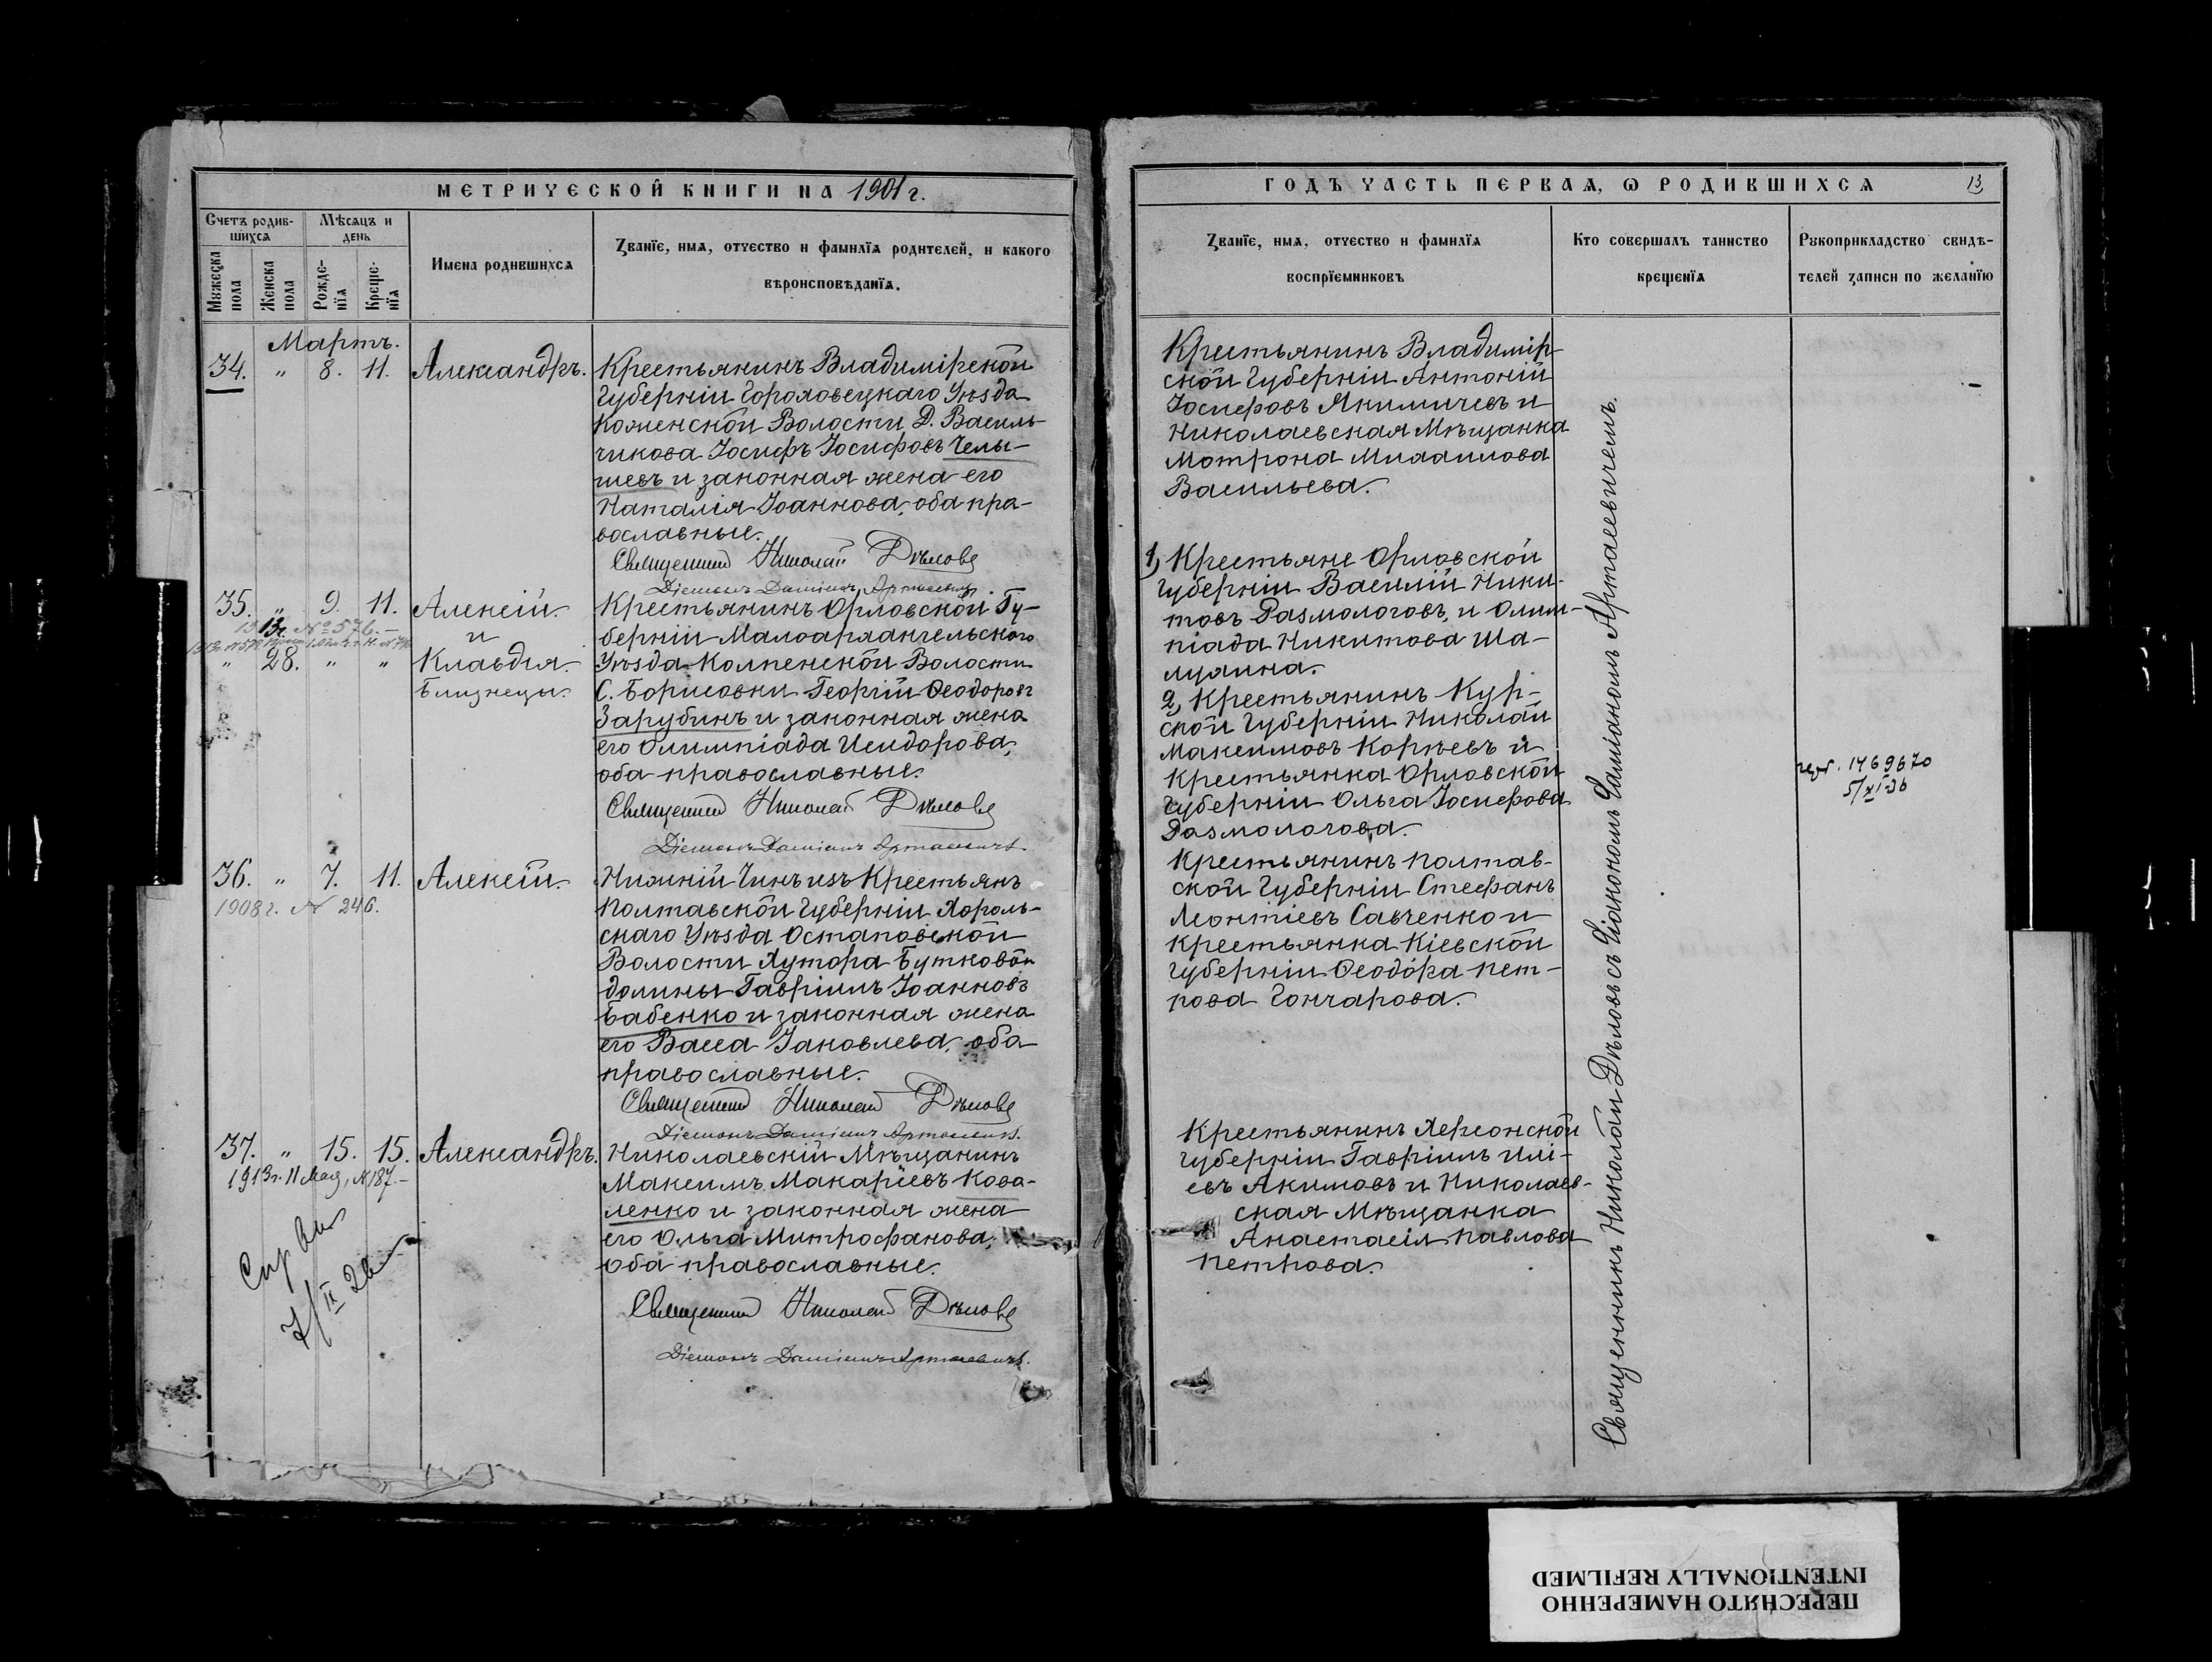 МЕТРИЧЕСКОЙ КНИГИ НА 1901 г.
Счетъ родив-
шихся
Мѣсяцъ и
день
Мужеска
пола
Женска
пола
Рожде-
нїя
Креще-
нїя
Имена родившихся
Званїе, имя, отчество и фамилїя родителей, и какого
вѣроисповѣданїя.
Мартъ.
34. „ 8. 11. Александръ.
Крестьянинъ Владимірской
Губерніи Гороховецкаго Уѣзда
Коменской Волости Д. Василь-
чикова Іосифъ Іосифовъ Челы-
шевъ и законная жена его
Наталія Іоаннова, оба пра-
вославные.
Священникъ Николай Дѣловъ
Діаконъ Даміанъ Артасевичъ
35. „ 9. 11. Алексій
и
„ 28. „ „ Клавдія.
Близнецы.
Крестьянинъ Орловской Гу-
берніи Малоархангельскаго
Уѣзда Колпенской Волости
С. Борисовки Георгій Ѳеодоровъ
Зарубинъ и законная жена
его Олимпіада Исидорова,
оба православные.
Священникъ Николай Дѣловъ
Діаконъ Даміанъ Артасевичъ.
36. „ 7. 11. Алексій.
1908 г. № 246.
Нижній Чинъ изъ Крестьянъ
Полтавской Губерніи Хороль-
скаго Уѣзда Остаповской
Волости Хутора Бутковой
долины Гавріилъ Іоанновъ
Бабенко и законная жена
его Васса Іаковлева, оба
православные.
Священникъ Николай Дѣловъ
Діаконъ Даміанъ Артасевичъ.
37. „ 15. 15. Александръ.
1913 г. 11 Мая, № 187.-
Николаевскій Мѣщанинъ
Максимъ Макаріевъ Кова-
ленко и законная жена
его Ольга Митрофанова,
оба православные.
Священникъ Николай Дѣловъ
Діаконъ Даміанъ Артасевичъ.
ГОДЪ ЧАСТЬ ПЕРВАЯ, Ѡ РОДИВШИХСЯ
13
Званїе, имя, отчество и фамилїя
воспрїемниковъ
Кто совершалъ таинство
крещенїя
Рукоприкладство свидѣ-
телей записи по желанїю
Крестьянинъ Владимір-
ской Губерніи Антоній
Іосифовъ Якимичевъ и
Николаевская Мѣщанка
Мотрона Михаилова
Васильева.
1, Крестьяне Орловской
Губерніи Василій Ники-
товъ Размологовъ, и Олим-
піада Никитова Ша-
лухина.
2, Крестьянинъ Кур-
ской Губерніи Николай
Максимовъ Корневъ и
Крестьянка Орловской
Губерніи Ольга Іосифова
Размологова.
Крестьянинъ Полтав-
ской Губерніи Стефанъ
Леонтіевъ Савченко и
Крестьянка Кіевской
Губерніи Ѳеодора Пет-
рова Гончарова.
Крестьянинъ Херсонской
Губерніи Гавріилъ Илі-
евъ Акимовъ и Николаев-
ская Мѣщанка
Анастасія Павлова
Петрова.
Священникъ Николай Дѣловъ съ Діакономъ Даміаномъ Артасевичемъ.
1469670
5/XI-36
ПЕРЕСНЯТО НАМЕРЕННО
INTENTIONALLY REFILMED